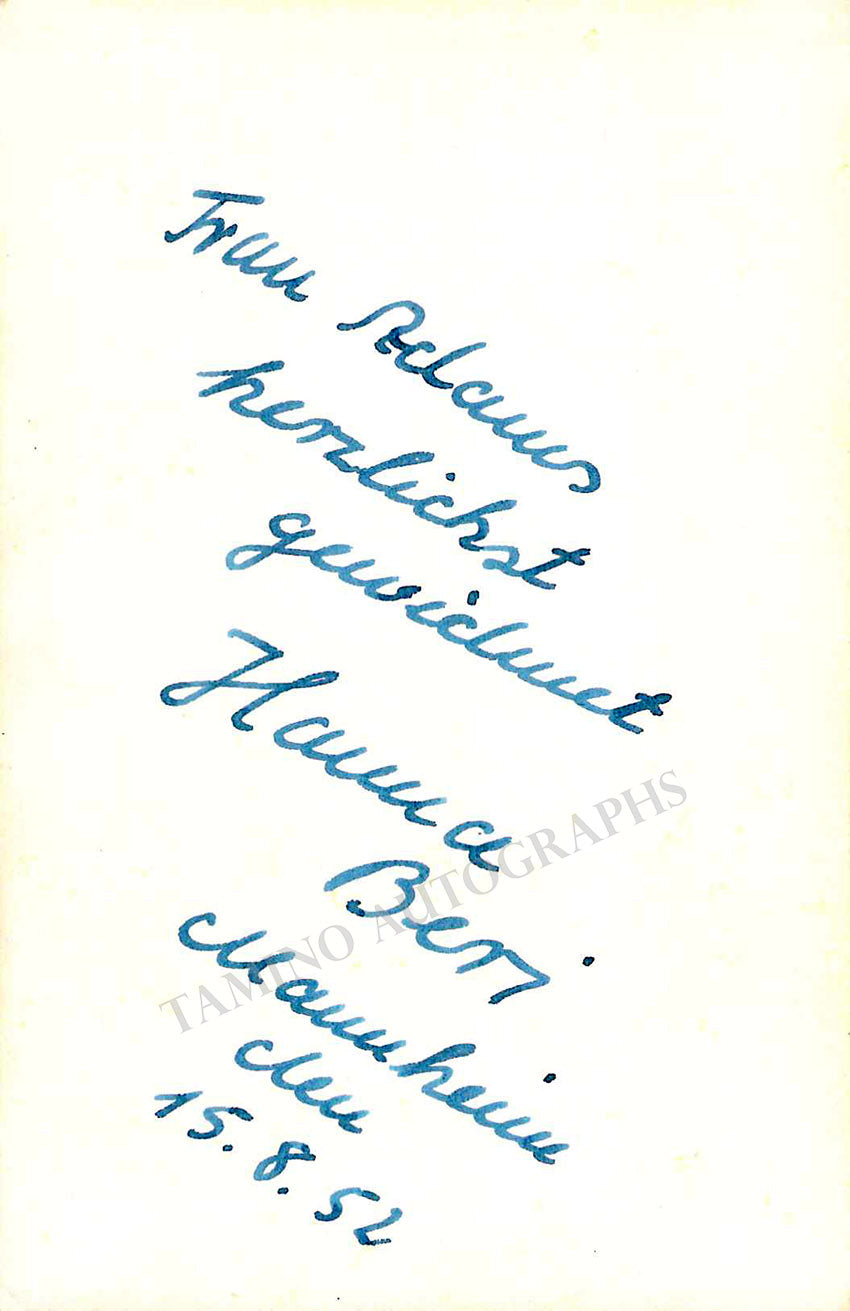 Frau Adams
herzlichst
gewidmet
Hanna
Beri
Mannheim
den
15.8.52
TAMINO AUTOGRAPHS